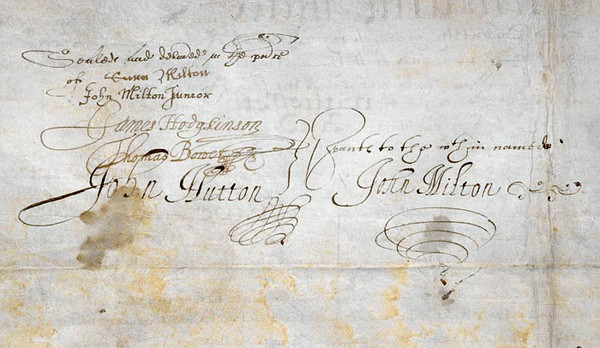 Sealed and delived in the psnce
of Sara Milton
John Milton Junior
James Hodgkinson
Thomas Bower
John Hutton
svants to the wthin named
John Milton